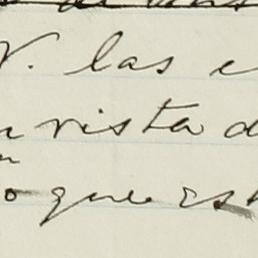 V. las e
a vista d
o que es